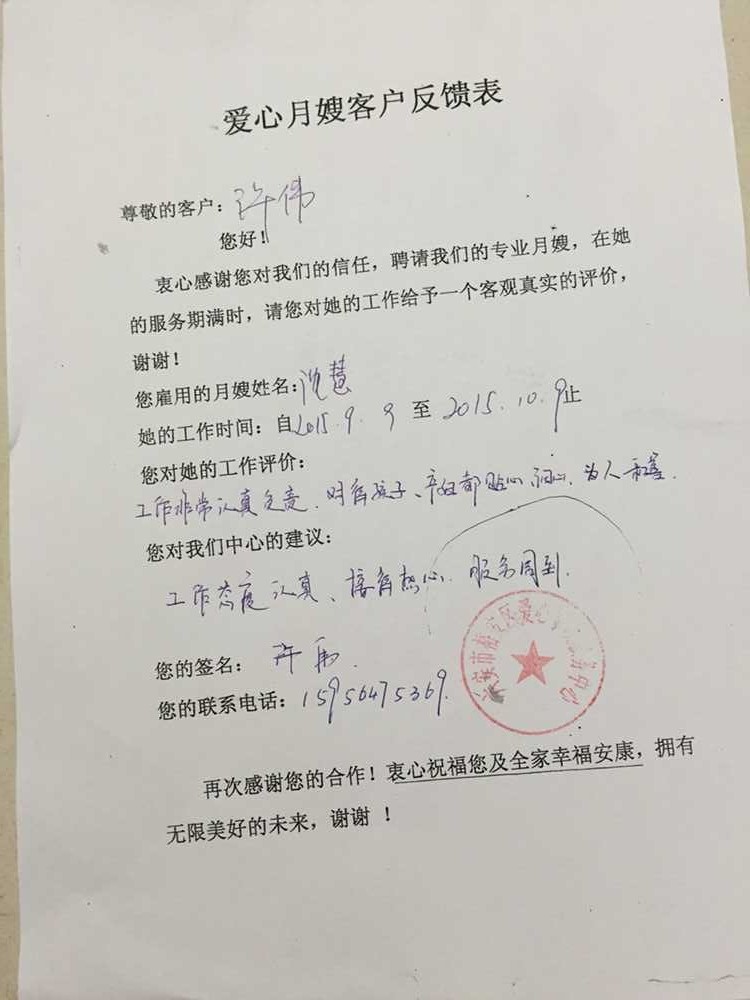 爱心月嫂客户反馈表
尊敬的客户：许伟
您好！
衷心感谢您对我们的信任，聘请我们的专业月嫂，在她
的服务期满时，请您对她的工作给予一个客观真实的评价，
谢谢！
您雇用的月嫂姓名：沈慧
她的工作时间：自2015.9.9至2015.10.9止
您对她的工作评价：
工作非常认真负责．对待孩子、产妇都贴心、细心，为人和善．
您对我们中心的建议：
工作态度认真、接待热心．服务周到．
您的签名：许
您的联系电话：15956475369.
六安市 区爱心 中心
再次感谢您的合作！衷心祝福您及全家幸福安康，拥有
无限美好的未来，谢谢 ！